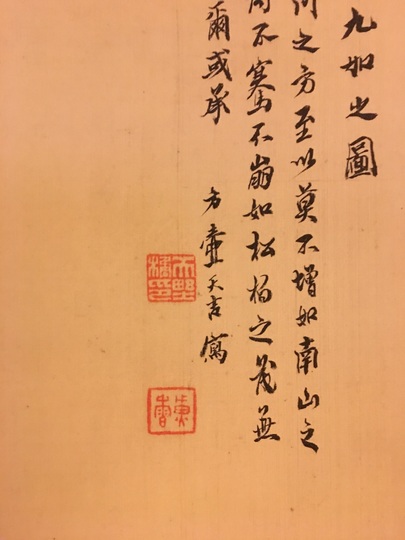 九如之圖
之方至以莫不增如南山之
不騫不崩如松栢之茂無
爾或承
方壷天吉寫